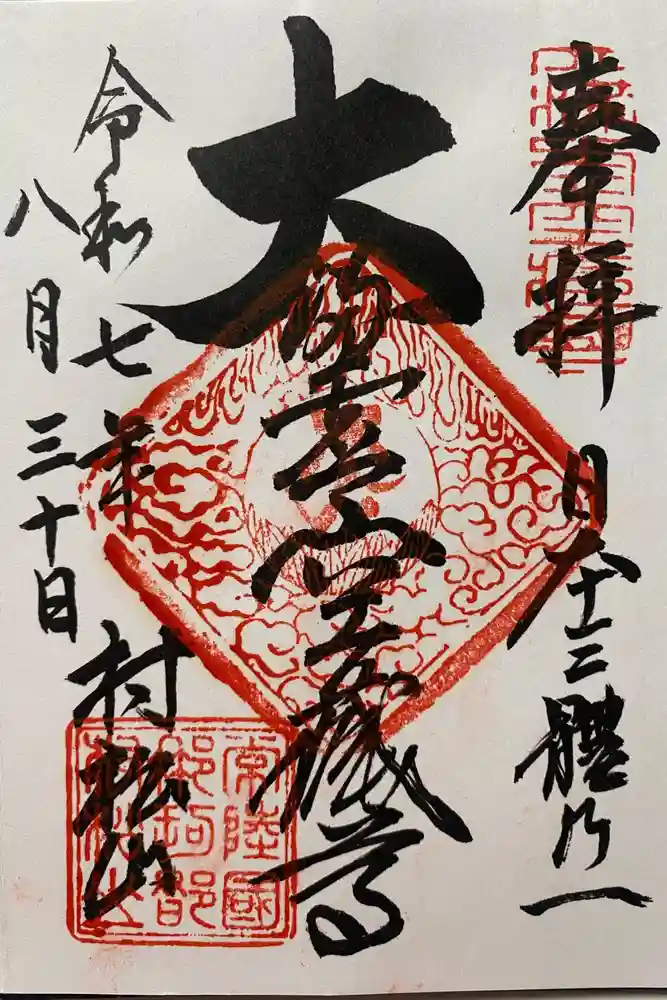 奉拝
日本三體乃一
大満虚空蔵尊
令和七年
八月三十日
村松山
常陸國
那珂郡
村松山